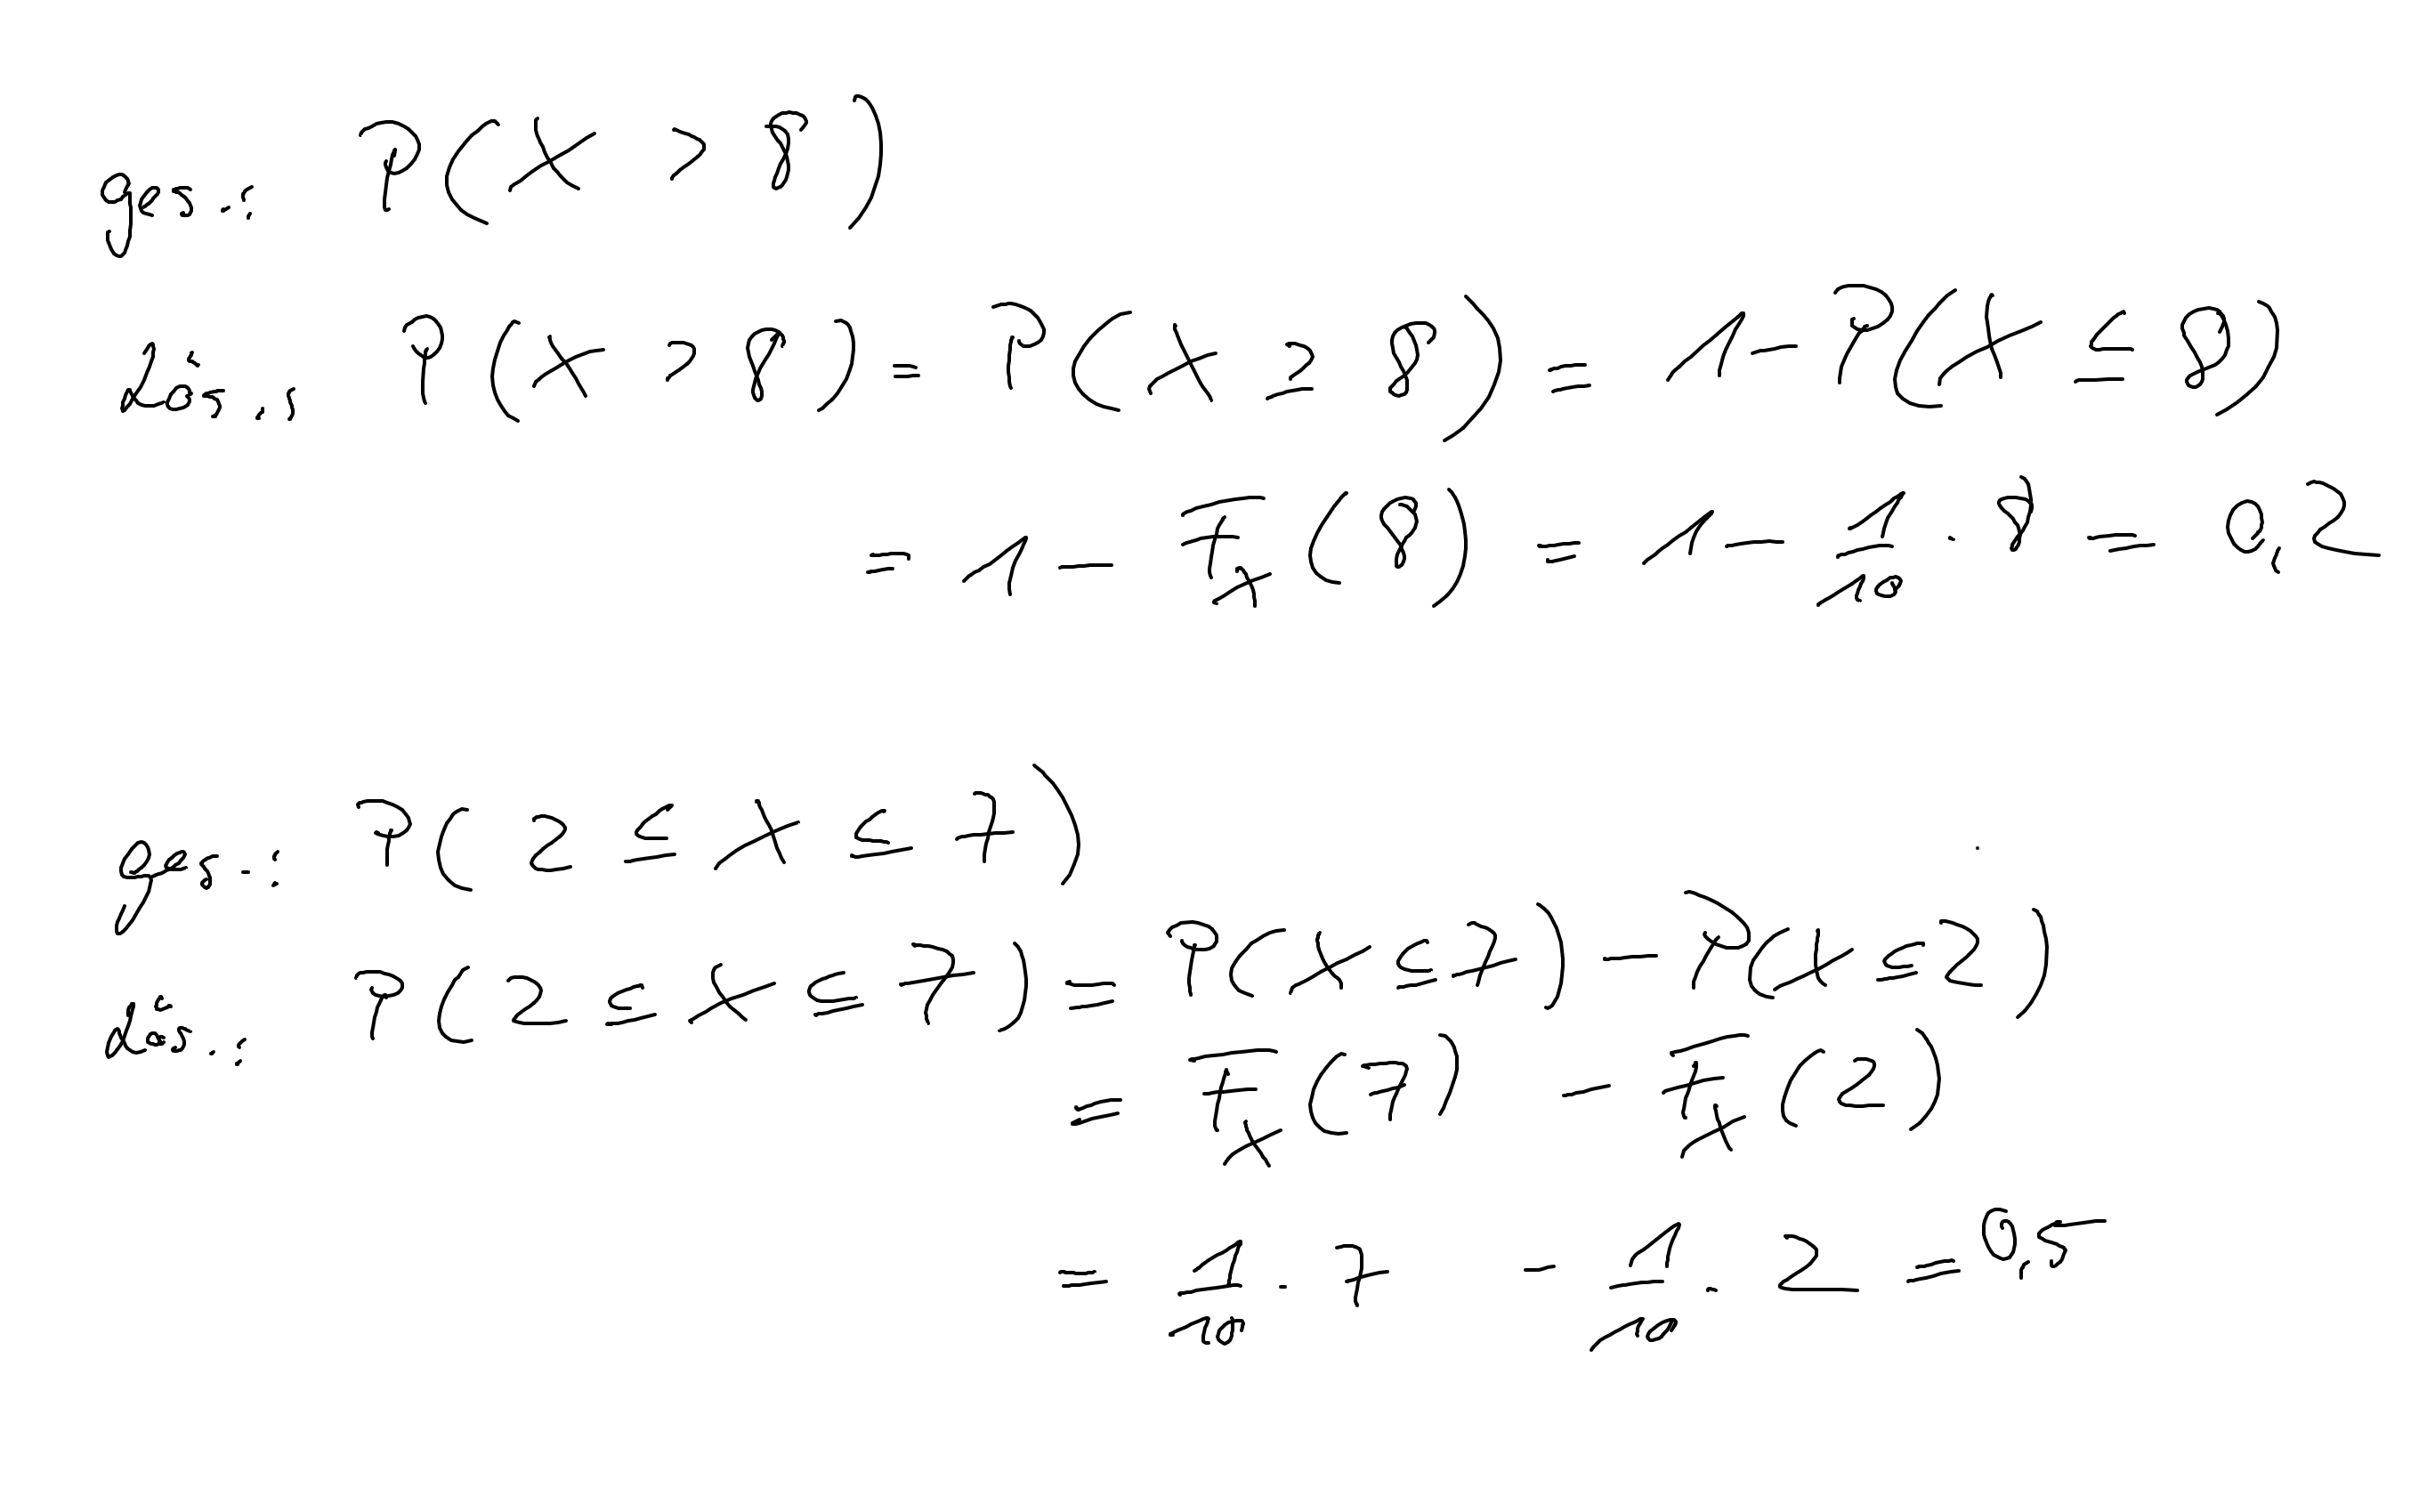 ges.: P(X > 8)
Lös.: P(X > 8) = P(X ≥ 8) = 1 - P(X ≤ 8)
= 1 - F_X(8) = 1 - 1/10 · 8 = 0,2
ges.: P(2 ≤ X ≤ 7)
Lös.: P(2 ≤ X ≤ 7) = P(X ≤ 7) - P(X ≤ 2)
= F_X(7) - F_X(2)
= 1/10 · 7 - 1/10 · 2 = 0,5